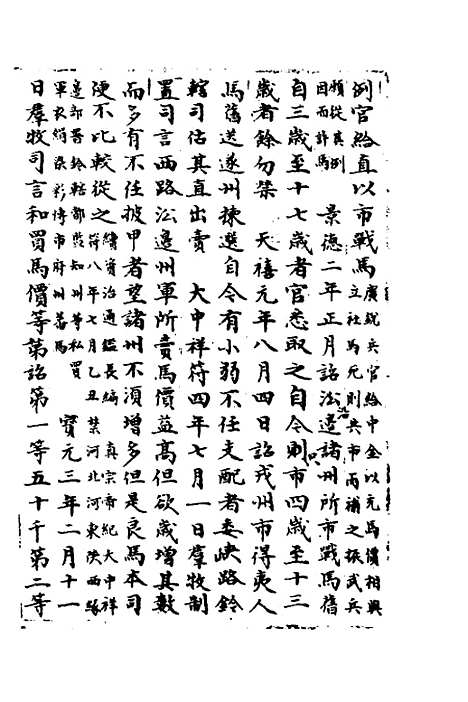 例官給直以市戰馬廣銳兵官給中金以元馬價相與立社馬死則共市而補之振武兵
願從其例因而許馬　景德二年正月詔沿邊諸州所市戰馬舊
自三歲至十七歲者官悉取之自今則市四歲至十三
歲者餘勿禁　天禧元年八月四日詔戎州市得夷人
馬舊送遂州揀選自今有小弱不任支配者委峽路鈐
轄司估其直出賣　大中祥符四年七月一日羣牧制
置司言西路沿邊州軍所賣馬價益高但欲歲增其數
而多有不任披甲者望諸州不須增多但是良馬本司
便不比較從之續資治通鑑長編真宗帝紀大中祥符八年七月乙丑禁河北河東陝西緣
邊部署鈐轄都監知州等私買軍衣絹染彩博市府州蕃馬　寶元三年二月十一
日羣牧司言和買馬價等第詔第一等五十千第二等